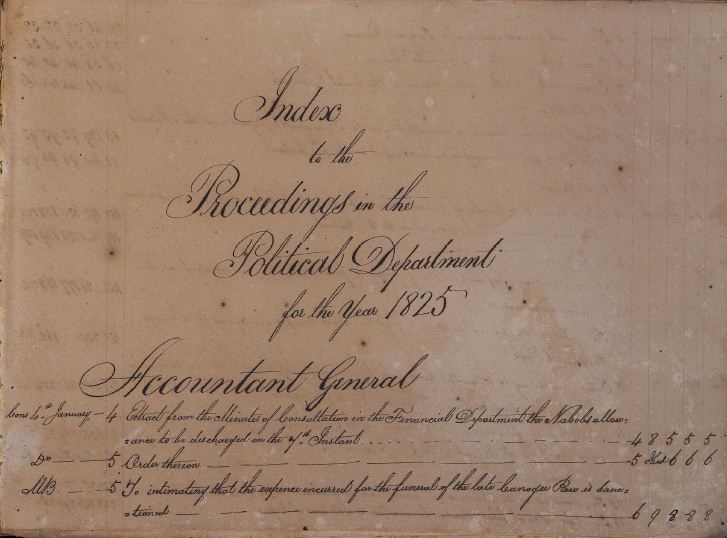 Index
to the
Proceedings in the
Political Department
for the Year 1825
Accountant General
Cons 4th January - 4 Extract from the Minutes of Consultation in the Financial Department the Nabobs allow=
=ance to be discharged on the 7th Instant 4 8 5 5 5
Do 5 Order thereon 5 6 6 6
5 To intimating that the expence incurred for the funeral of the late Canoger Row is sanc=
=tioned 6 9 8 8 8